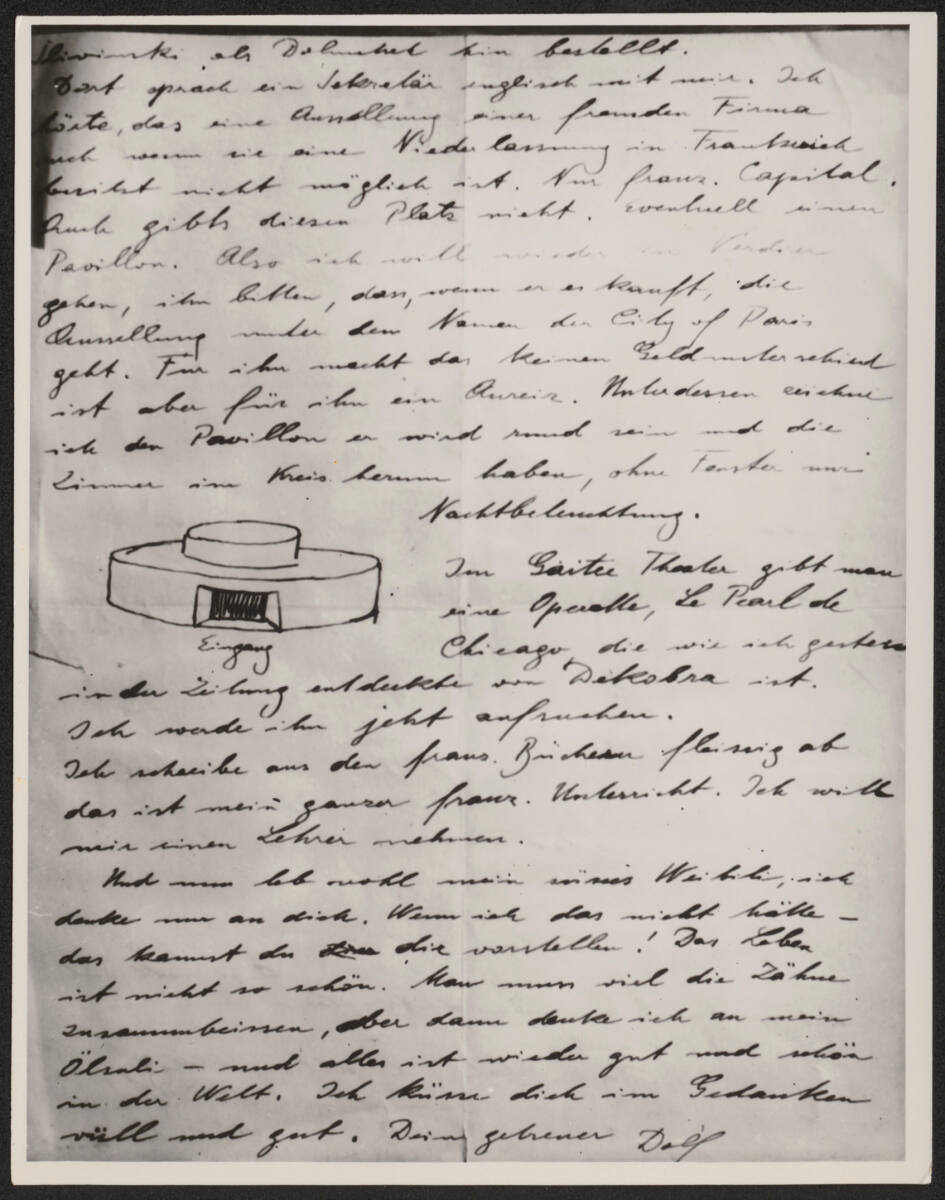 Sliwinski als Dolmetch hin bestellt.
Dort sprach ein Sekretär englisch mit mir. Ich
hörte, das eine Ausstellung einer fremden Firma
auch wenn sie eine Niederlassung in Frankreich
besitzt nicht möglich ist. Nur franz. Capital.
Auch gibts diesen Platz nicht. Eventuell einen
Pavillon. Also ich will wieder zu Verdier
gehen, ihn bitten, dass, wenn er es kauft, die
Ausstellung unter dem Namen der City of Paris
geht. Für ihn macht das keinen Geldunterschied
ist aber für ihn ein Anreiz. Unterdessen zeichne
ich den Pavillon er wird rund sein und die
Zimmer im Kreis herum haben, ohne Fenster nur
Nachtbeleuchtung.
Im Gaitee Theater gibt man
eine Operette, Le Pearl de
Chicago, die wie ich gestern
Eingang
in der Zeitung entdeckte von Dekobra ist.
Ich werde ihn jetzt aufsuchen.
Ich schreibe aus den franz. Büchern fleissig ab
das ist mein ganzer franz. Unterricht. Ich will
mir einen Lehrer nehmen.
Und nun leb wohl mein süsses Weibili, ich
denke nur an dich. Wenn ich das nicht hätte –
das kannst du dir vorstellen! Das Leben
ist nicht so schön. Man muss viel die Zähne
zusammenbeissen, aber dann denke ich an mein
Ölsali – und alles ist wieder gut und schön
in der Welt. Ich küsse dich im Gedanken
viill und gut. Dein getreuer Dolf